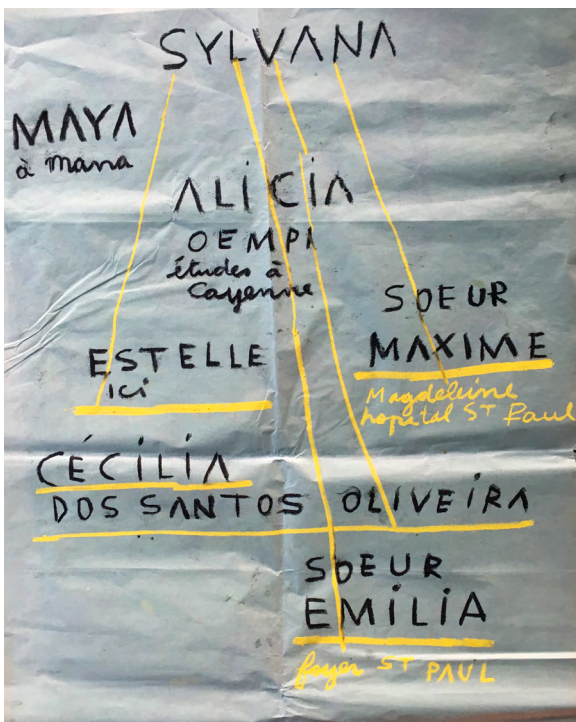 SYLVANA
MAYA
à mana
ALiCiA
OEMPI
études à
Cayenne
SOEUR
MAXIME
Magdeleine
hopital ST Paul
ESTELLE
ici
CÉCiLiA
DOS SANTOS OLIVEiRA
SOEUR
EMiLiA
foyer ST PAUL